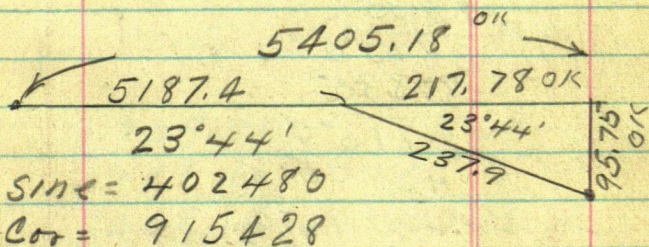 5405.18 OK
5187.4 217.78 OK
23°44' 23°44'
237.9
95.75 OK
sine = 402480
Cos = 915428